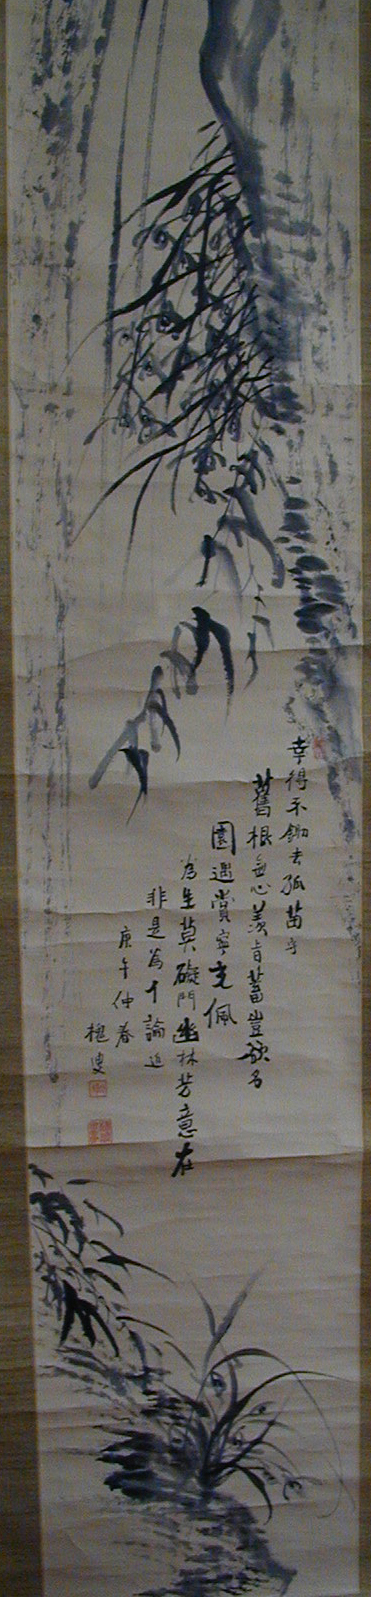 幸得不鋤去孤苗守
舊根無心羨旨蓄豈欲名
園遇賞寧充佩
為生莫礙門幽林芳意在
非是為人論 近
庚午仲春
叟